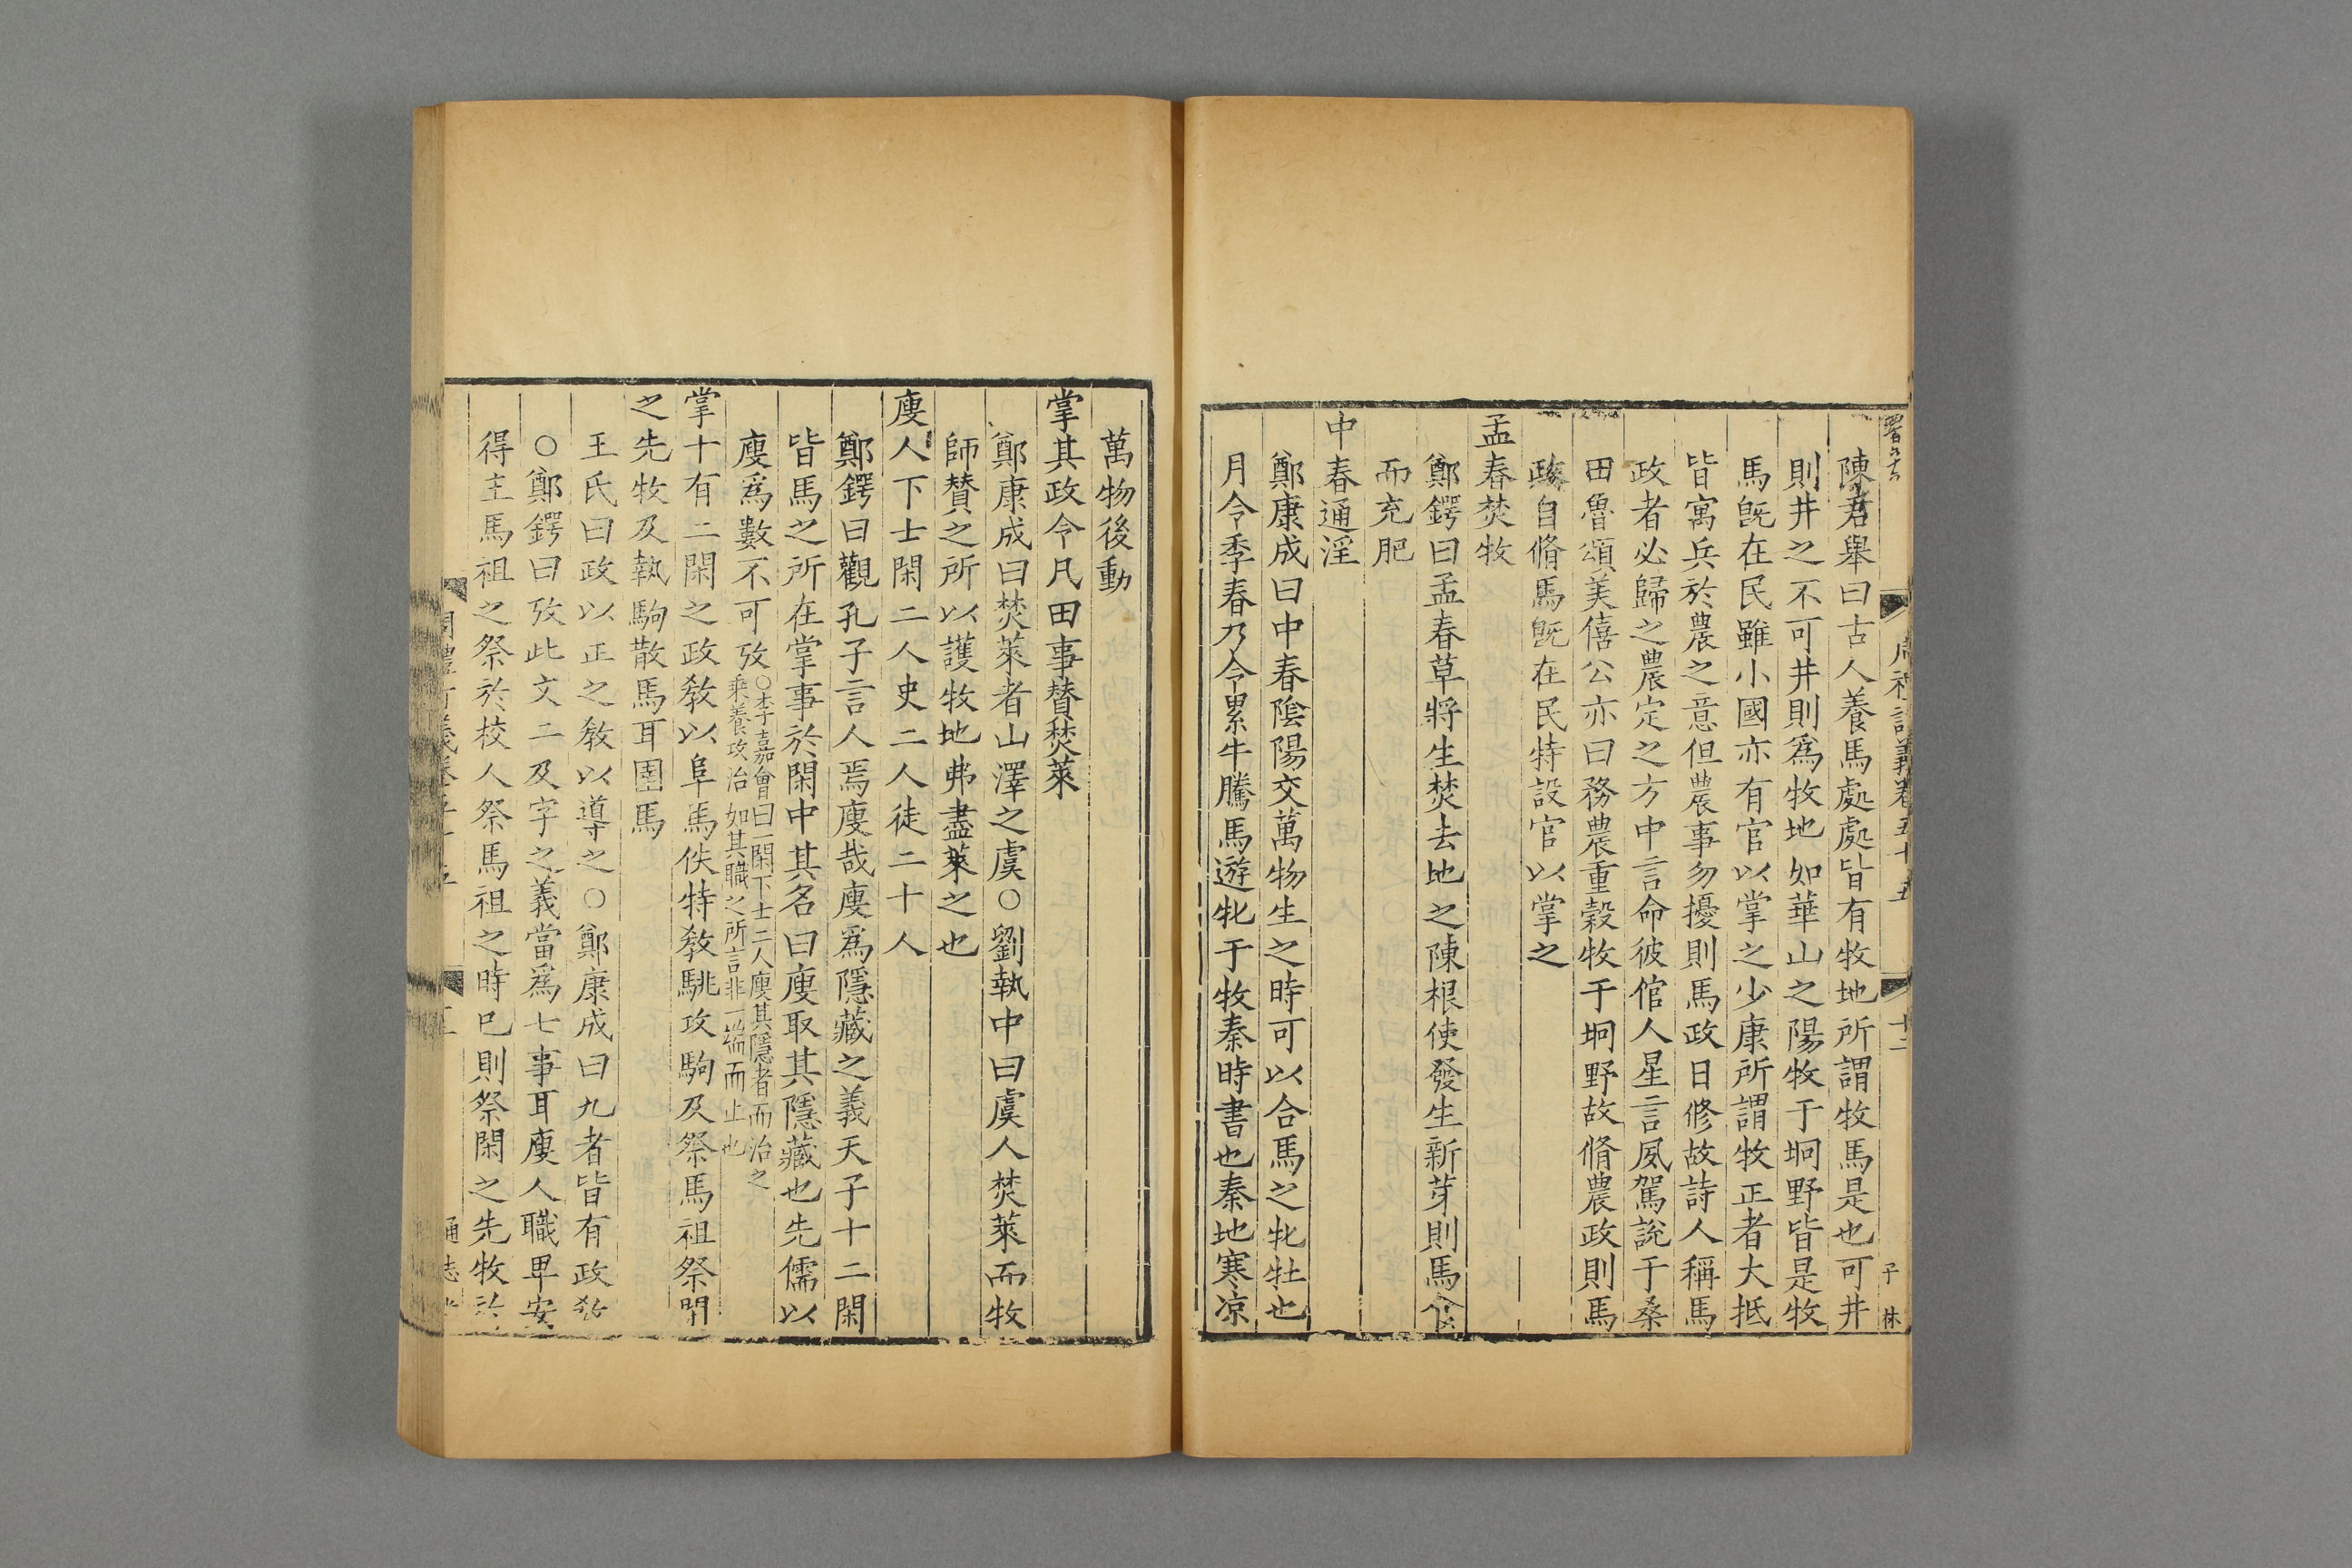 陳君舉曰古人養馬處處皆有牧地所謂牧馬是也可井
則井之不可井則爲牧地如華山之陽牧于坰野皆是牧
馬旣在民雖小國亦有官以掌之少康所謂牧正者大抵
皆寓兵於農之意但農事勿擾則馬政日修故詩人稱馬
政者必歸之農定之方中言命彼倌人星言夙駕說于桑
田魯頌美僖公亦曰務農重穀牧于坰野故脩農政則馬
政自脩馬旣在民特設官以掌之
孟春焚牧
鄭鍔曰孟春草將生焚去地之陳根使發生新芽則馬食
而充肥
中春通淫
鄭康成曰中春陰陽交萬物生之時可以合馬之牝牡也
月令季春乃令累牛騰馬遊牝于牧秦時書也秦地寒凉
萬物後動
掌其政令凡田事贊焚萊
鄭康成曰焚萊者山澤之虞○劉執中曰虞人焚萊而牧
師贊之所以護牧地弗盡萊之也
廋人下士閑二人史二人徒二十人
鄭鍔曰觀孔子言人焉廋哉廋爲隱藏之義天子十二閑
皆馬之所在掌事於閑中其名曰廋取其隱藏也先儒以
廋爲數不可攷○李嘉會曰一閑下士二人廋其隱者而治之
乗養攻治如其職之所言非一端而止也
掌十有二閑之政敎以阜馬佚特敎駣攻駒及祭馬祖祭閑
之先牧及執駒散馬耳圉馬
王氏曰政以正之敎以導之○鄭康成曰九者皆有政敎
○鄭鍔曰攷此文二及字之義當爲七事耳廋人職卑安
得主馬祖之祭於校人祭馬祖之時已則祭閑之先牧於
周禮訂義卷五十五
十二
子
林